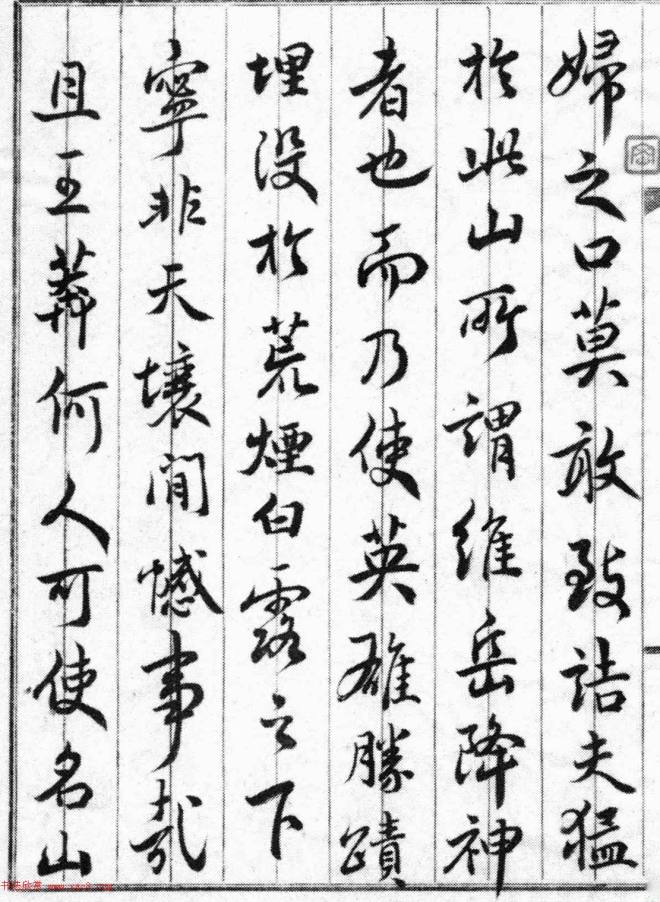 婦之口莫敢致詰夫猛
於此山所謂維岳降神
者也而乃使英雄勝蹟
埋没於荒煙白露之下
寧非天壤間憾事哉
且王莽何人可使名山
书法欣赏 www.yac8.com